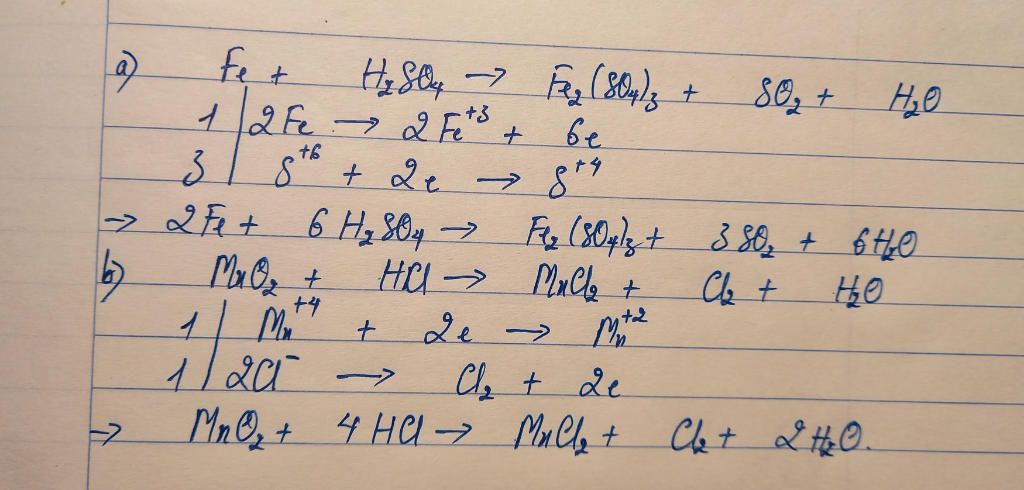 a) Fe + H₂SO₄ → Fe₂(SO₄)₃ + SO₂ + H₂O
1 | 2Fe → 2Fe⁺³ + 6e
3 | S⁺⁶ + 2e → S⁺⁴
→ 2Fe + 6H₂SO₄ → Fe₂(SO₄)₃ + 3SO₂ + 6H₂O
b) MnO₂ + HCl → MnCl₂ + Cl₂ + H₂O
1 | Mn⁺⁴ + 2e → Mn⁺²
1 | 2Cl⁻ → Cl₂ + 2e
→ MnO₂ + 4HCl → MnCl₂ + Cl₂ + 2H₂O.